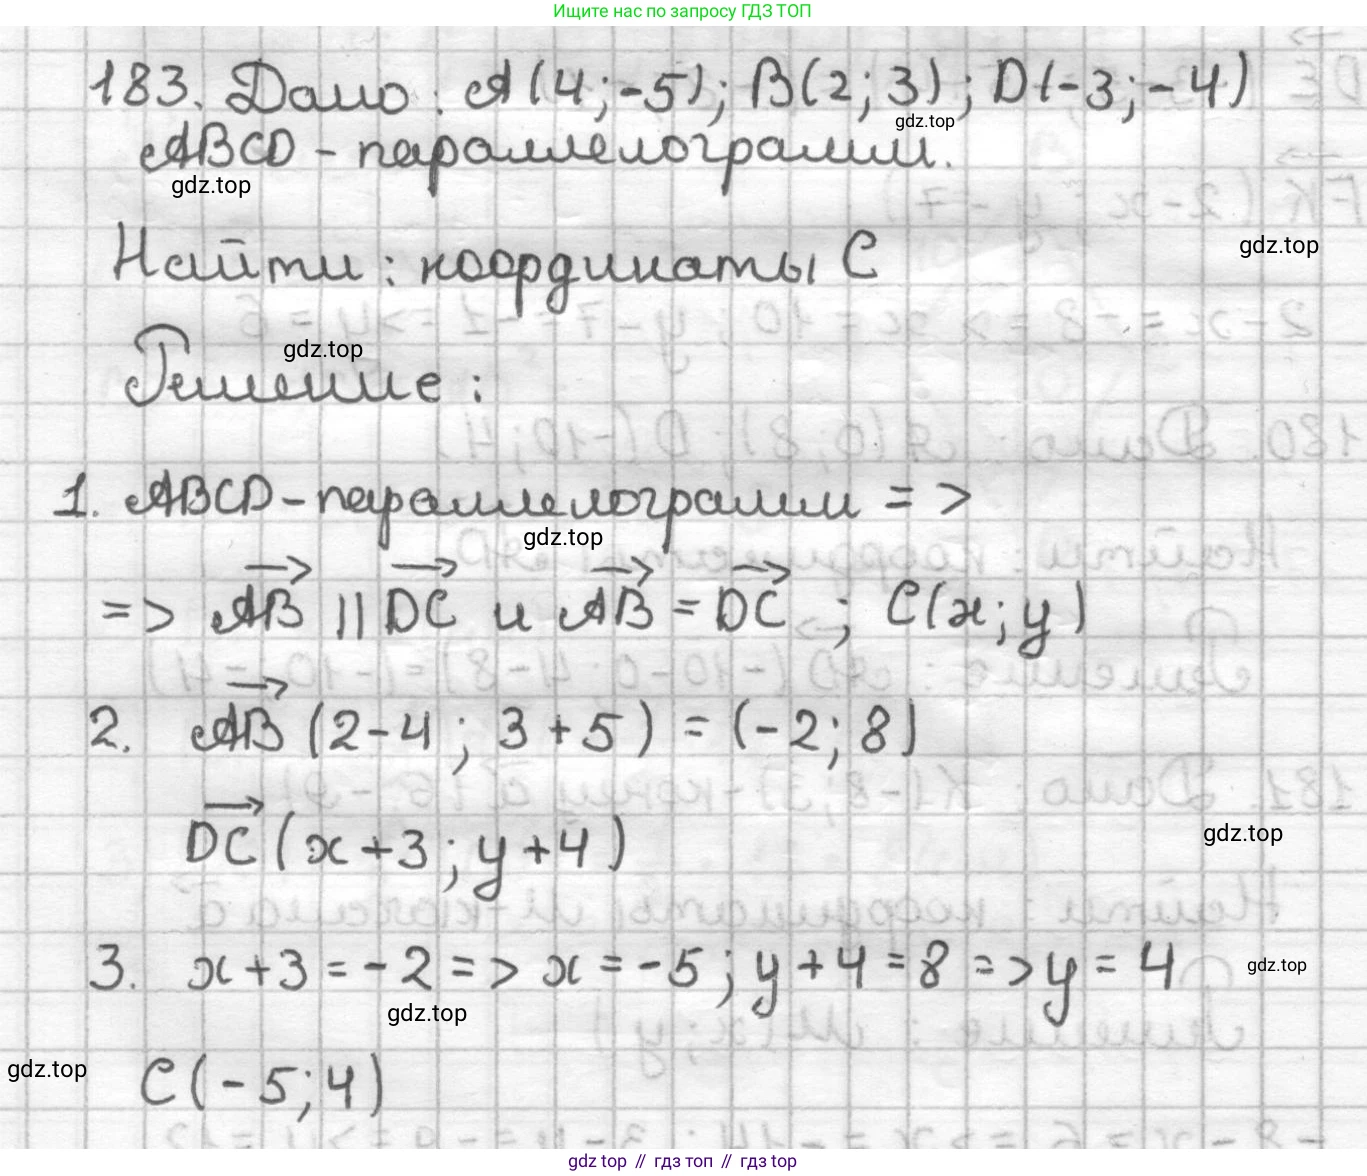 Ищите нас по запросу ГДЗ ТОП
183. Дано: A(4;-5); B(2; 3); D(-3;-4)
gdz.top
ABCD - параллелограмм.
gdz.top
Найти: координаты C
gdz.top
gdz.top
Решение:
1. ABCD - параллелограмм =>
gdz.top
=> AB || DC и AB = DC ; C(x; y)
2. AB (2-4 ; 3+5) = (-2; 8)
DC (x+3; y+4)
gdz.top
3. x+3=-2 => x=-5; y+4=8 => y=4
gdz.top
gdz.top
gdz.top
C(-5;4)
gdz top // гдз топ // gdz top